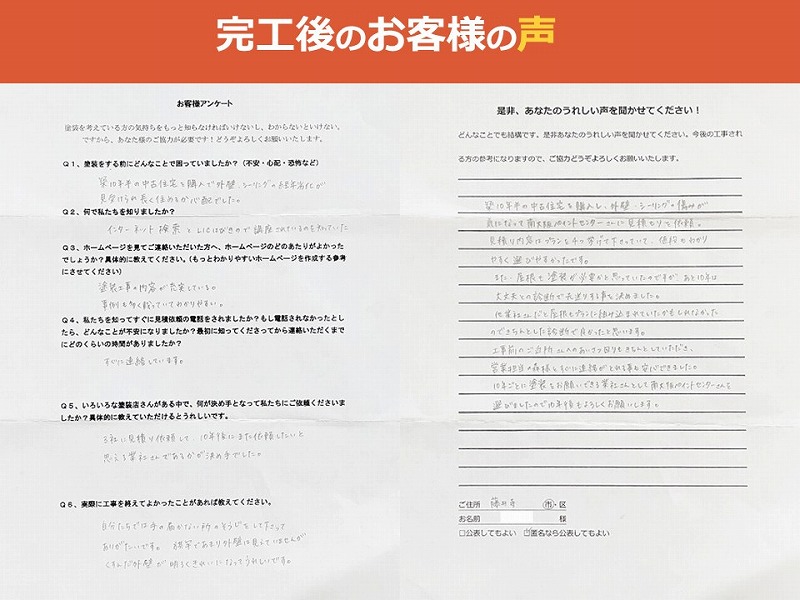 完工後のお客様の声
お客様アンケート
塗装を考えている方の気持ちをもっと知らなければいけないし、わからないといけない。
ですから、あなた様のご協力が必要です！どうぞよろしくお願いいたします。
Q1、塗装をする前にどんなことで困っていましたか？（不安・心配・恐怖など）
築10年半の中古住宅を購入で外壁、シーリングの経年劣化が
見受けられ長く住めるか心配でした。
Q2、何で私たちを知りましたか？
インターネット検索とLICはびきので講座されているのを知っていた
Q3、ホームページを見てご連絡いただいた方へ、ホームページのどのあたりがよかった
でしょうか？具体的に教えてください。（もっとわかりやすいホームページを作成する参考
にさせてください）
塗装工事の内容が充実している。
事例も多く載っていてわかりやすい。
Q4、私たちを知ってすぐに見積依頼の電話をされましたか？もし電話されなかったとし
たら、どんなことが不安になりましたか？最初に知ってくださってから連絡いただくまで
にどのくらいの時間がありましたか？
すぐに連絡しています。
Q5、いろいろな塗装店さんがある中で、何が決め手となって私たちにご依頼くださいま
したか？具体的に教えていただけるとうれしいです。
3社に見積り依頼して 10年後にまた依頼したいと
思える業社さんであるかが決め手でした。
Q6、実際に工事を終えてよかったことがあれば教えてください。
自分たちでは手の届かない所のそうじをして下さって
ありがたいです。
くすんだ外壁が明るくきれいになってうれしいです。
是非、あなたのうれしい声を聞かせてください！
どんなことでも結構です。是非あなたのうれしい声を聞かせてください。今後の工事され
る方の参考になりますので、ご協力どうぞよろしくお願いいたします。
築10年半の中古住宅を購入し、外壁・シーリングの傷みが
気になって南大阪ペイントセンターさんに見積もりを依頼。
見積り内容はプランを4つ挙げて下さっていて、価格もわかり
やすく選びやすかったです。
また、屋根も塗装が必要かと思っていたのですが、あと10年は
大丈夫との診断で見送りする事を決めました。
他業社さんだと屋根もプランに組み込まれていたかもしれなかった
のできちんとした診断で良かったと思います。
工事前のご近所さんへのあいさつ回りもきちんとしていただき、
営業担当の森様とすぐに連絡がとれる事も安心できました。
10年ごとに塗装をお願いできる業社さんとして南大阪ペイントセンターさんを
選びましたので10年後もよろしくお願いします。
ご住所 藤井寺 市・区
お名前 様
□公表してもよい ☑匿名なら公表してもよい